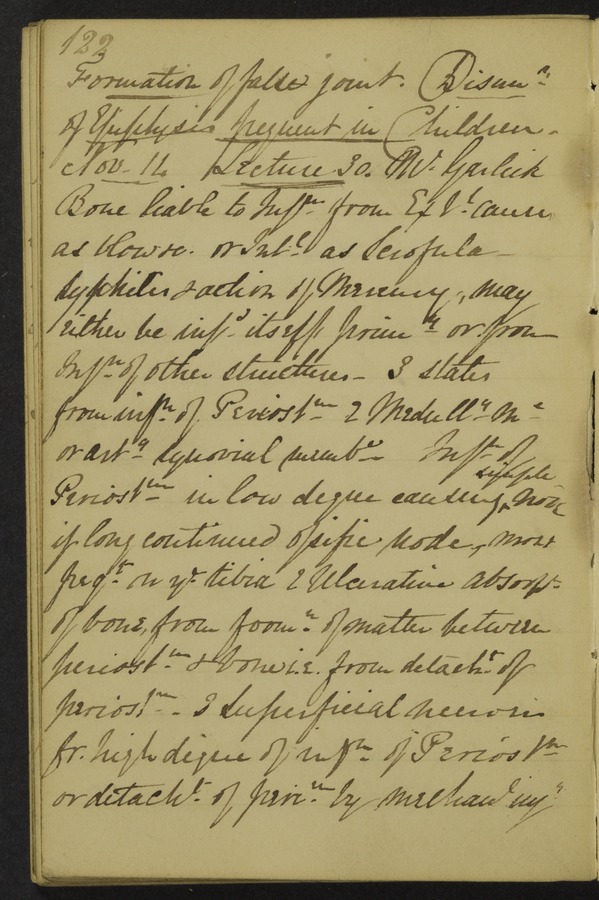 122
Formation of false joint. Disunn
of Epiphysis frequent in Children.
Nov. 14 Lecture 30. Mr. Garlick
Bone liable to Infn from Ext causes
as blows. or Intl as Scrofula
syphilis & action of Mercury, may
either be infd itself primy or from
Infn of other structures - 3 states
from infn of Periostm 2 Medully Me
or arty synovial membe Infn of
Periostm in low degree causing simple node
if long continued ossific node, most
freqt on ye tibia 2 Ulcerative absorpn
of bone, from formn of matter between
periostm & bone i.e. from detacht of
periostm - 3 Superficial necrosis
fr. high degree of infn of Periostm
or detacht of perim by mechanl injy